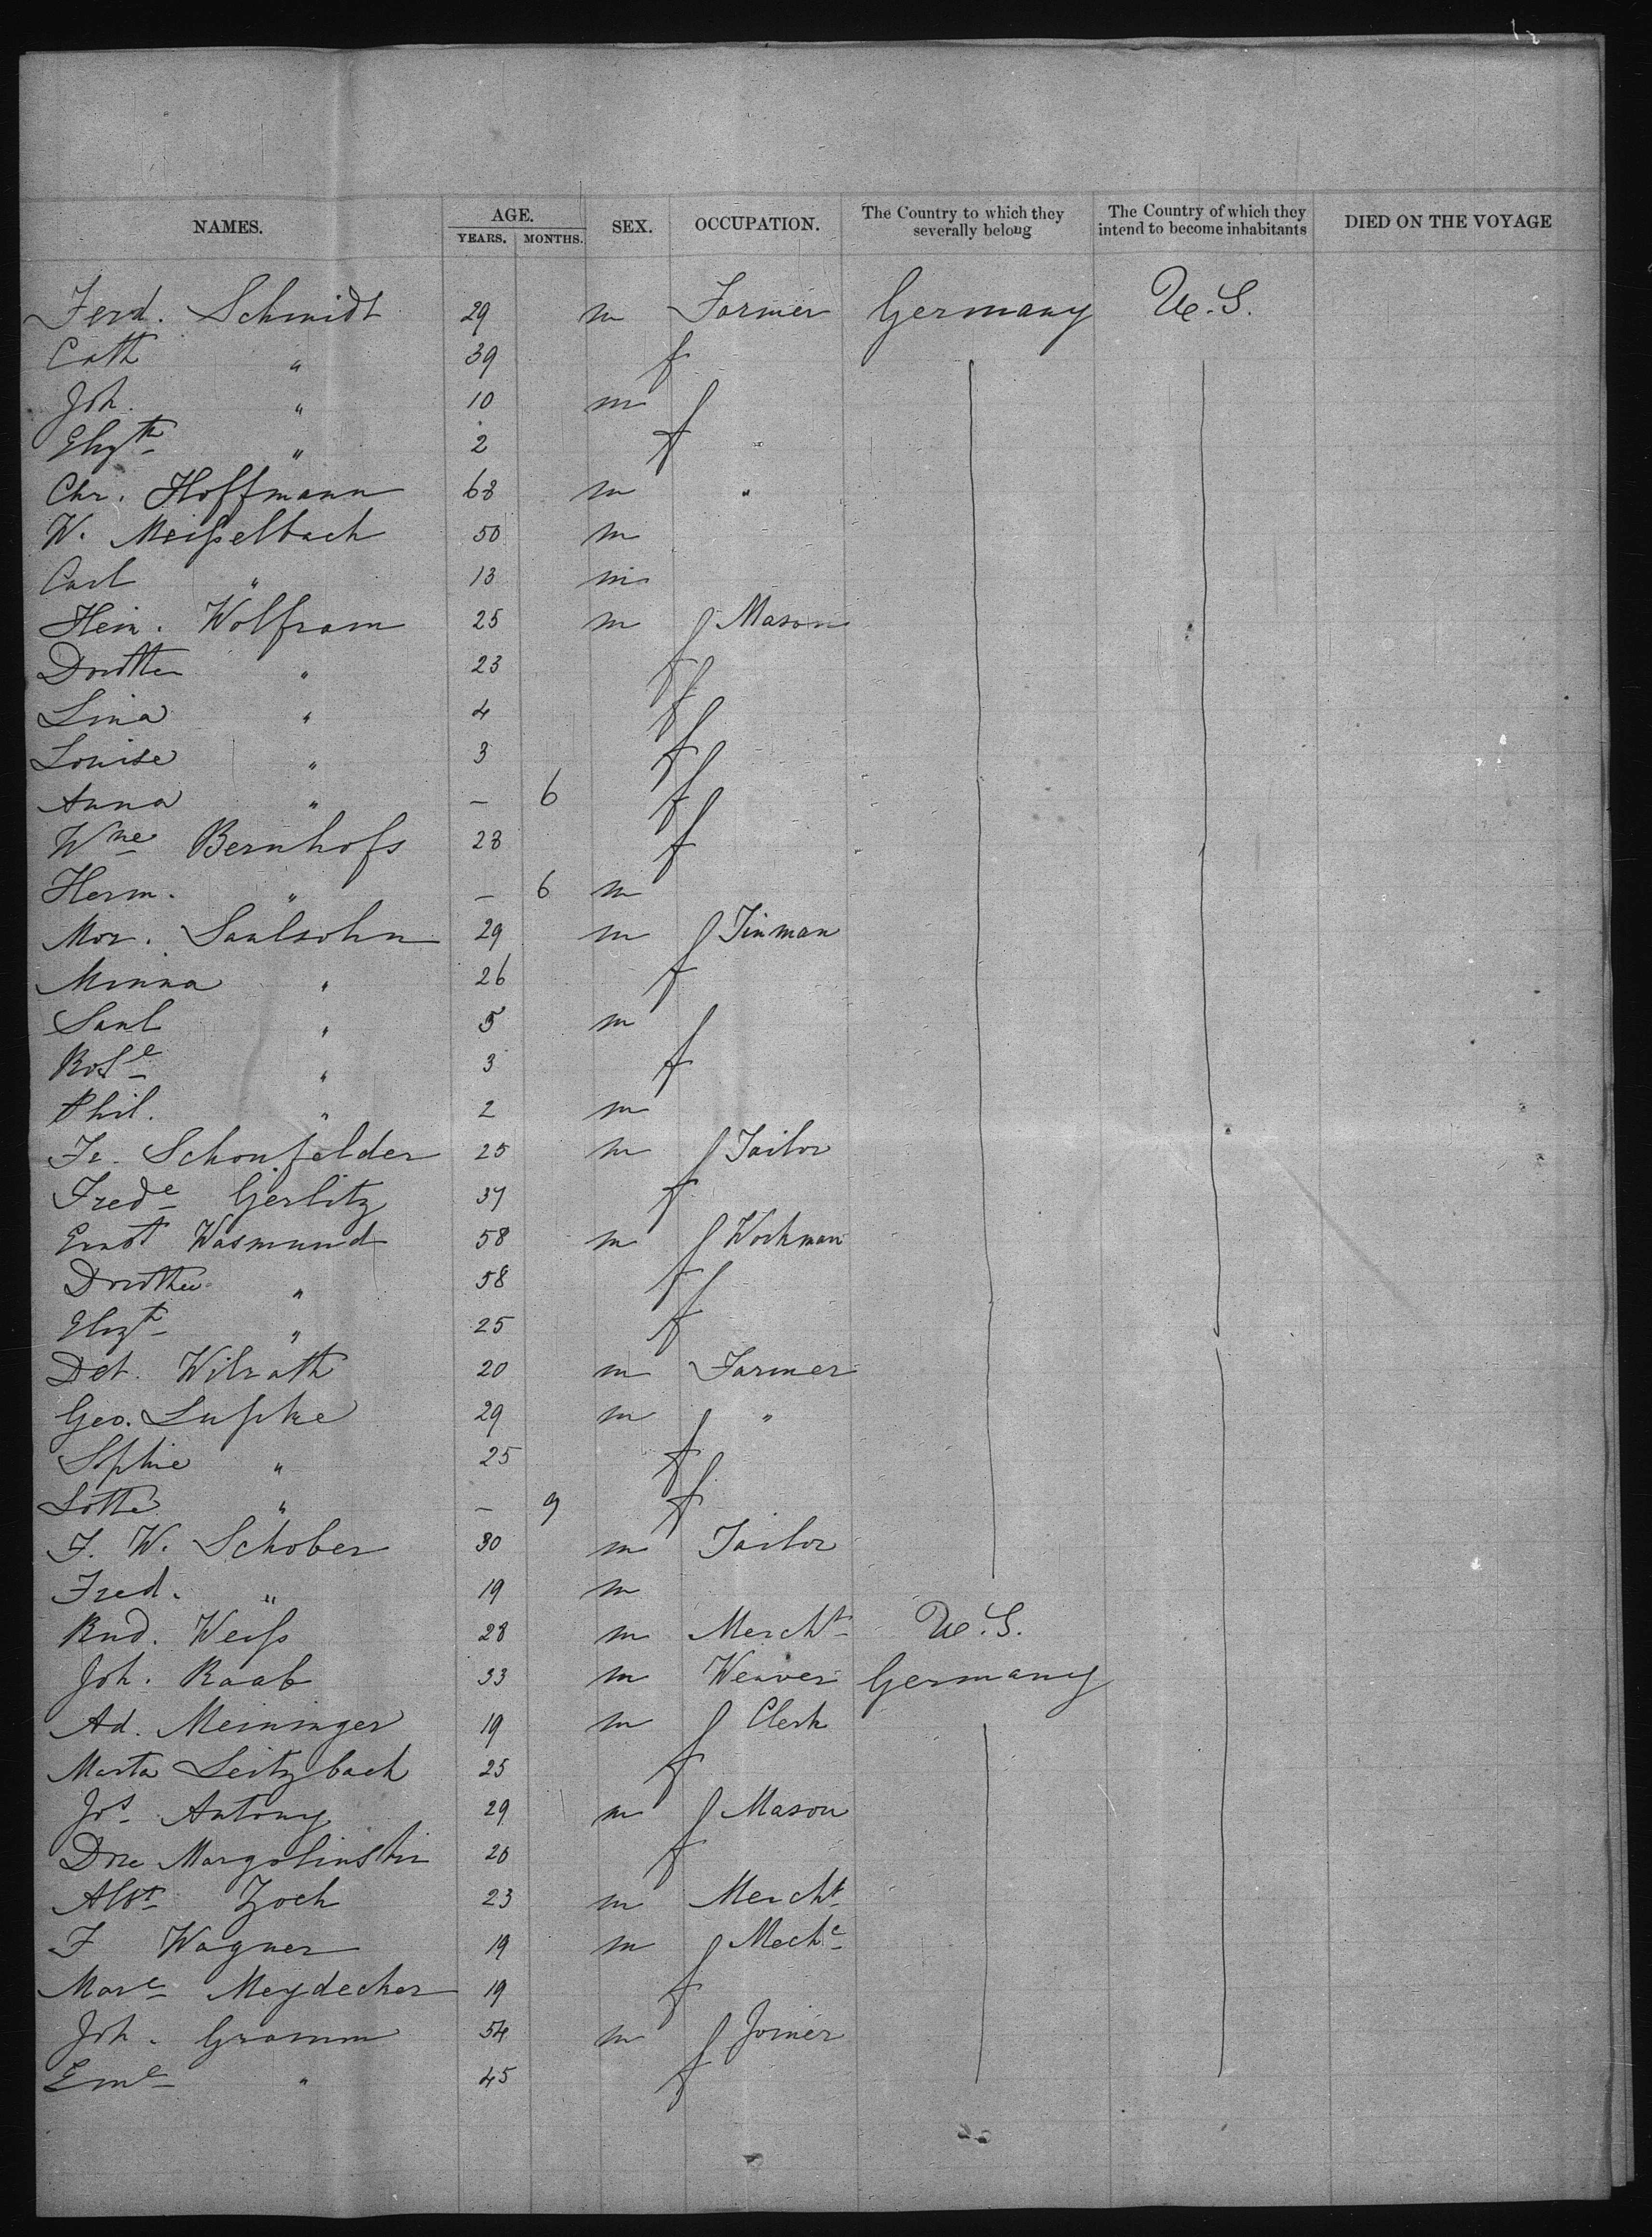 NAMES. AGE. YEARS. MONTHS. SEX. OCCUPATION. The Country to which they severally belong The Country of which they intend to become inhabitants DIED ON THE VOYAGE
Ferd. Schmidt 29 m Farmer Germany U.S.
Cath " 39 f
Joh. " 10 m
Elizth " 2 f "
Chr. Hoffmann 68 m "
W. Meißelbach 50 m
Carl " 13 m
Hein. Wolfram 25 m Mason
Dorothe " 23 f
Lina " 4 f
Louise " 3 f
Anna " – 6 f
Wne Bernhofs 28 f
Herm. " – 6 m
Mor. Saulsohn 29 m Tinman
Minna " 26 f
Saul " 5 m
Rose " 3 f
Phil. " 2 m
Fr. Schonfelder 25 m Tailor
Frede Gerlitz 37 f
Ernst Wasmund 58 m Workman
Dorothea " 58 f
Elizth " 25 f
Det. Wilrath 20 m Farmer
Geo. 29 m "
Sophie " 25 f
Lotte " – 9 f
F. W. Schober 30 m Tailor
Fred. " 19 m
Rud. Weiß 28 m Mercht U.S.
Joh. Raab 33 m Weaver Germany
Ad. Meininger 19 m Clerk
Marta Leitzbach 25 f
Jos Antony 29 m Mason
Dre Margolinski 20 f
Albt Zoch 23 m Mercht
F Wagner 19 m Mechc
Mare Meydecker 19 f
Joh. Gramm 54 m Joiner
Eme " 45 f